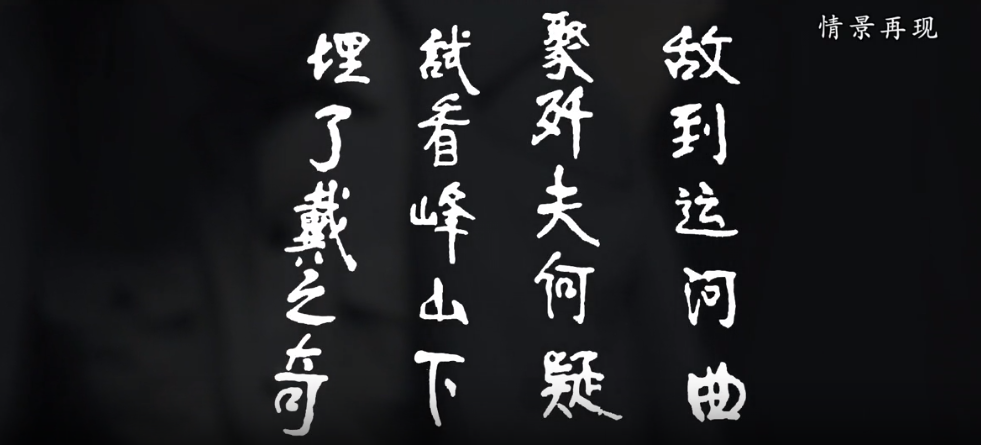 敌到运河曲
聚歼夫何疑
试看峰山下
埋了戴之奇
情景再现